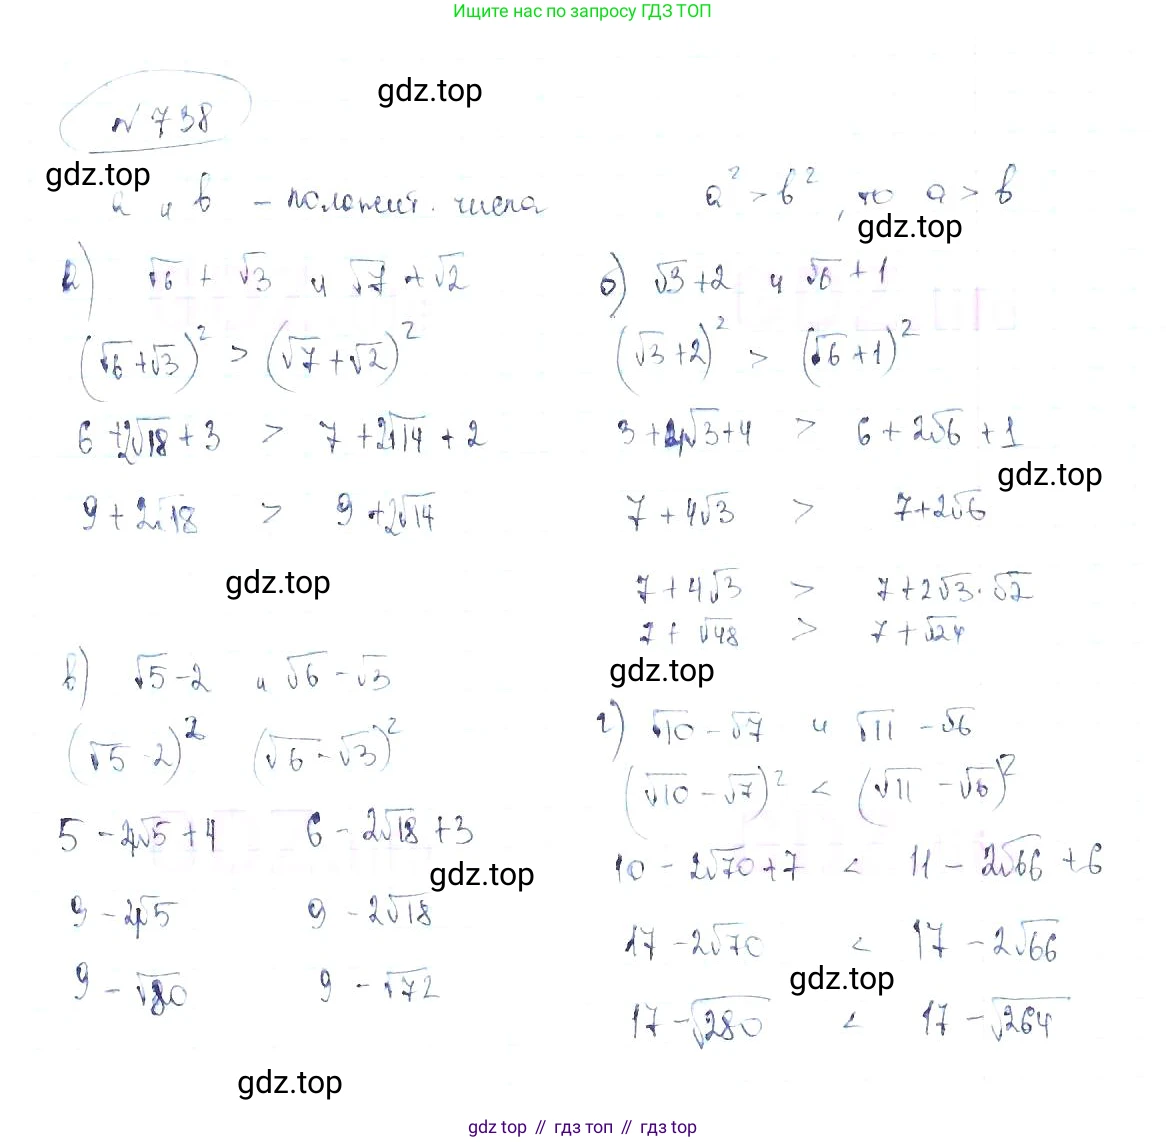 Ищите нас по запросу ГДЗ ТОП
gdz.top
N 738
gdz.top
a и b - положит. числа
a² > b², то a > b
gdz.top
а) √6 + √3 и √7 + √2
(√6+√3)² > (√7+√2)²
6+2√18+3 > 7+2√14+2
9+2√18 > 9+2√14
gdz.top
б) √3+2 и √6+1
(√3+2)² > (√6+1)²
3+4√3+4 > 6+2√6+1
gdz.top
7+4√3 > 7+2√6
7+4√3 > 7+2√3·√2
7+√48 > 7+√24
gdz.top
в) √5-2 и √6-√3
(√5-2)² (√6-√3)²
5-4√5+4 6-2√18+3
gdz.top
9-4√5 9-2√18
9-√80 9-√72
gdz.top
г) √10-√7 и √11-√6
(√10-√7)² < (√11-√6)²
10-2√70+7 < 11-2√66+6
17-2√70 < 17-2√66
gdz.top
17-√280 < 17-√264
gdz.top // гдз топ // gdz top